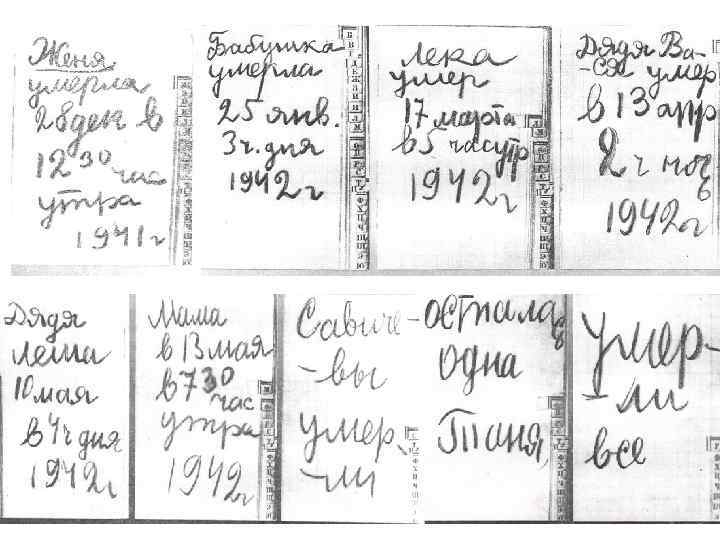 Женя
умерла
28 дек в
12 30 час
утра
1941 г
Бабушка
умерла
25 янв.
3 ч. дня
1942 г
Лека
умер
17 марта
в 5 час утр
1942 г
Дядя Ва-
-ся умер
в 13 апр
2 ч ноч
1942 г
Дядя
Леша
10 мая
в 4 ч дня
1942 г
Мама
в 13 мая
в 7 30
час
утра
1942 г
Савиче-
-вы
умер
-ли
умер-
-ли
все
осталась
одна
Таня